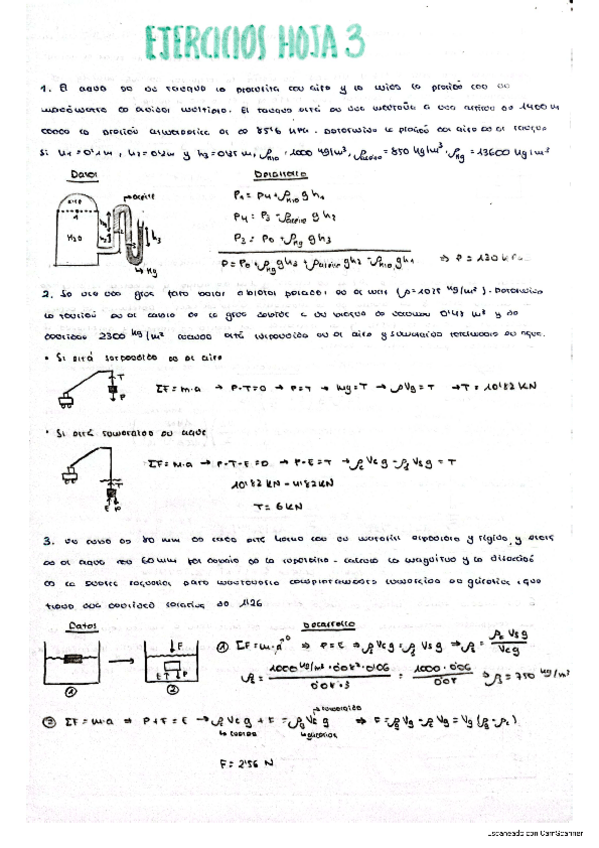 EJERCICIOS HOJA 3
1. El agua de un tanque se presuriza con aire y se mide la presión con un
manómetro de fluidos múltiples. El tanque está en una montaña a una altitud de 1400 m
donde la presión atmosférica es de 85'6 kPa. Determine la presión del aire en el tanque
si h1 = 0'1 m, h2 = 0'2 m y h3 = 0'35 m, ρH2O = 1000 kg/m³, ρaceite = 850 kg/m³, ρHg = 13600 kg/m³
Datos
Desarrollo
aceite
aire
1
H2O
h3
Hg
P1 = P4 - ρH2O g h1
P4 = P3 - ρaceite g h2
P3 = P0 + ρHg g h3
P = P0 + ρHg g h3 - ρaceite g h2 - ρH2O g h1 ⇒ P = 130 kPa
2. Se usa una grúa para bajar objetos pesados en el mar (ρ = 1025 kg/m³). Determine
la tensión en el cable de la grúa debido a un bloque de volumen 0'48 m³ y de
densidad 2300 kg/m³ cuando está suspendido en el aire y sumergido totalmente en agua.
• Si está suspendido en el aire
T
P
ΣF = m·a → P-T=0 → P=T → mg=T → ρVg = T → T = 10'82 KN
• Si está sumergido en agua
E P
ΣF = m·a → P-T-E = 0 → P-E = T → ρc Vc g - ρf Vs g = T
10'82 KN - 4'82 KN
T = 6 KN
3. Un cubo de 80 mm de lado está hecho con un material esponjoso y rígido, y flota
en el agua con 60 mm por debajo de la superficie. Calcula la magnitud y la dirección
de la fuerza requerida para mantenerlo completamente sumergido en glicerina, que
tiene una densidad relativa de 1'26
Datos
Desarrollo
① ②
F
E P
① ΣF = m·a⁰ ⇒ P = E ⇒ ρc Vc g = ρf Vs g ⇒ ρc = ρf Vs g / Vc g
ρc = 1000 kg/m³ · 0'08² · 0'06 / 0'08^3 = 1000 · 0'06 / 0'08 ⇒ ρc = 750 kg/m³
② ΣF = m·a ⇒ P + F = E → ρc Vc g + F = ρg Vc g ⇒ F = ρg Vg - ρc Vg = Vg (ρg - ρc)
sumergido
cuerpo
glicerina
F = 2'56 N
Escaneado con CamScanner